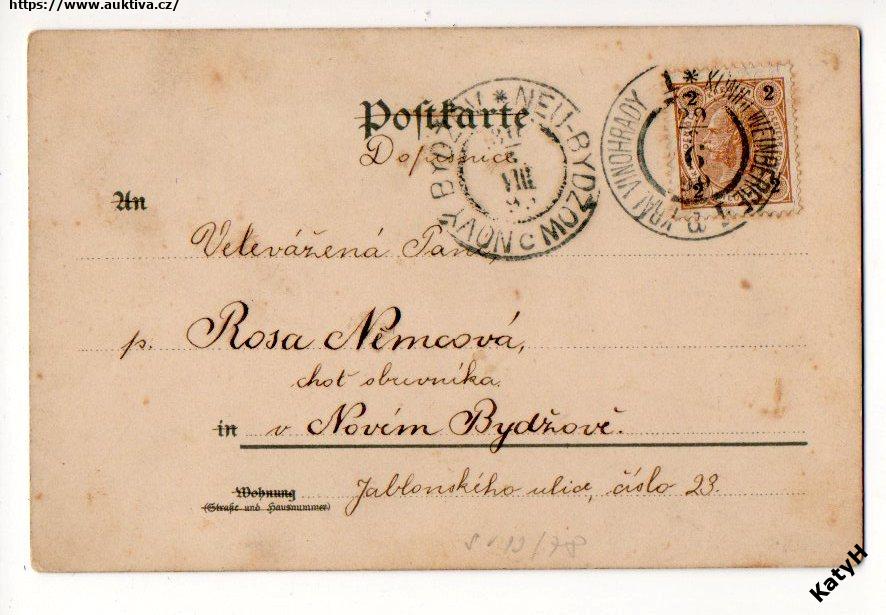 https://www.auktiva.cz/
Postkarte
Dopisnice
NOVÝ BYDŽOV * NEU-BYDŽOV
VIII
KRÁL. VINOHRADY * KÖNIGL. WEINBERGE
2 2
2 2
An
Velevážená Paní,
p. Rosa Němcová,
choť obuvníka
in v Novém Bydžově.
Wohnung
(Straße und Hausnummer)
Jablonského ulice, číslo 23.
KatyH